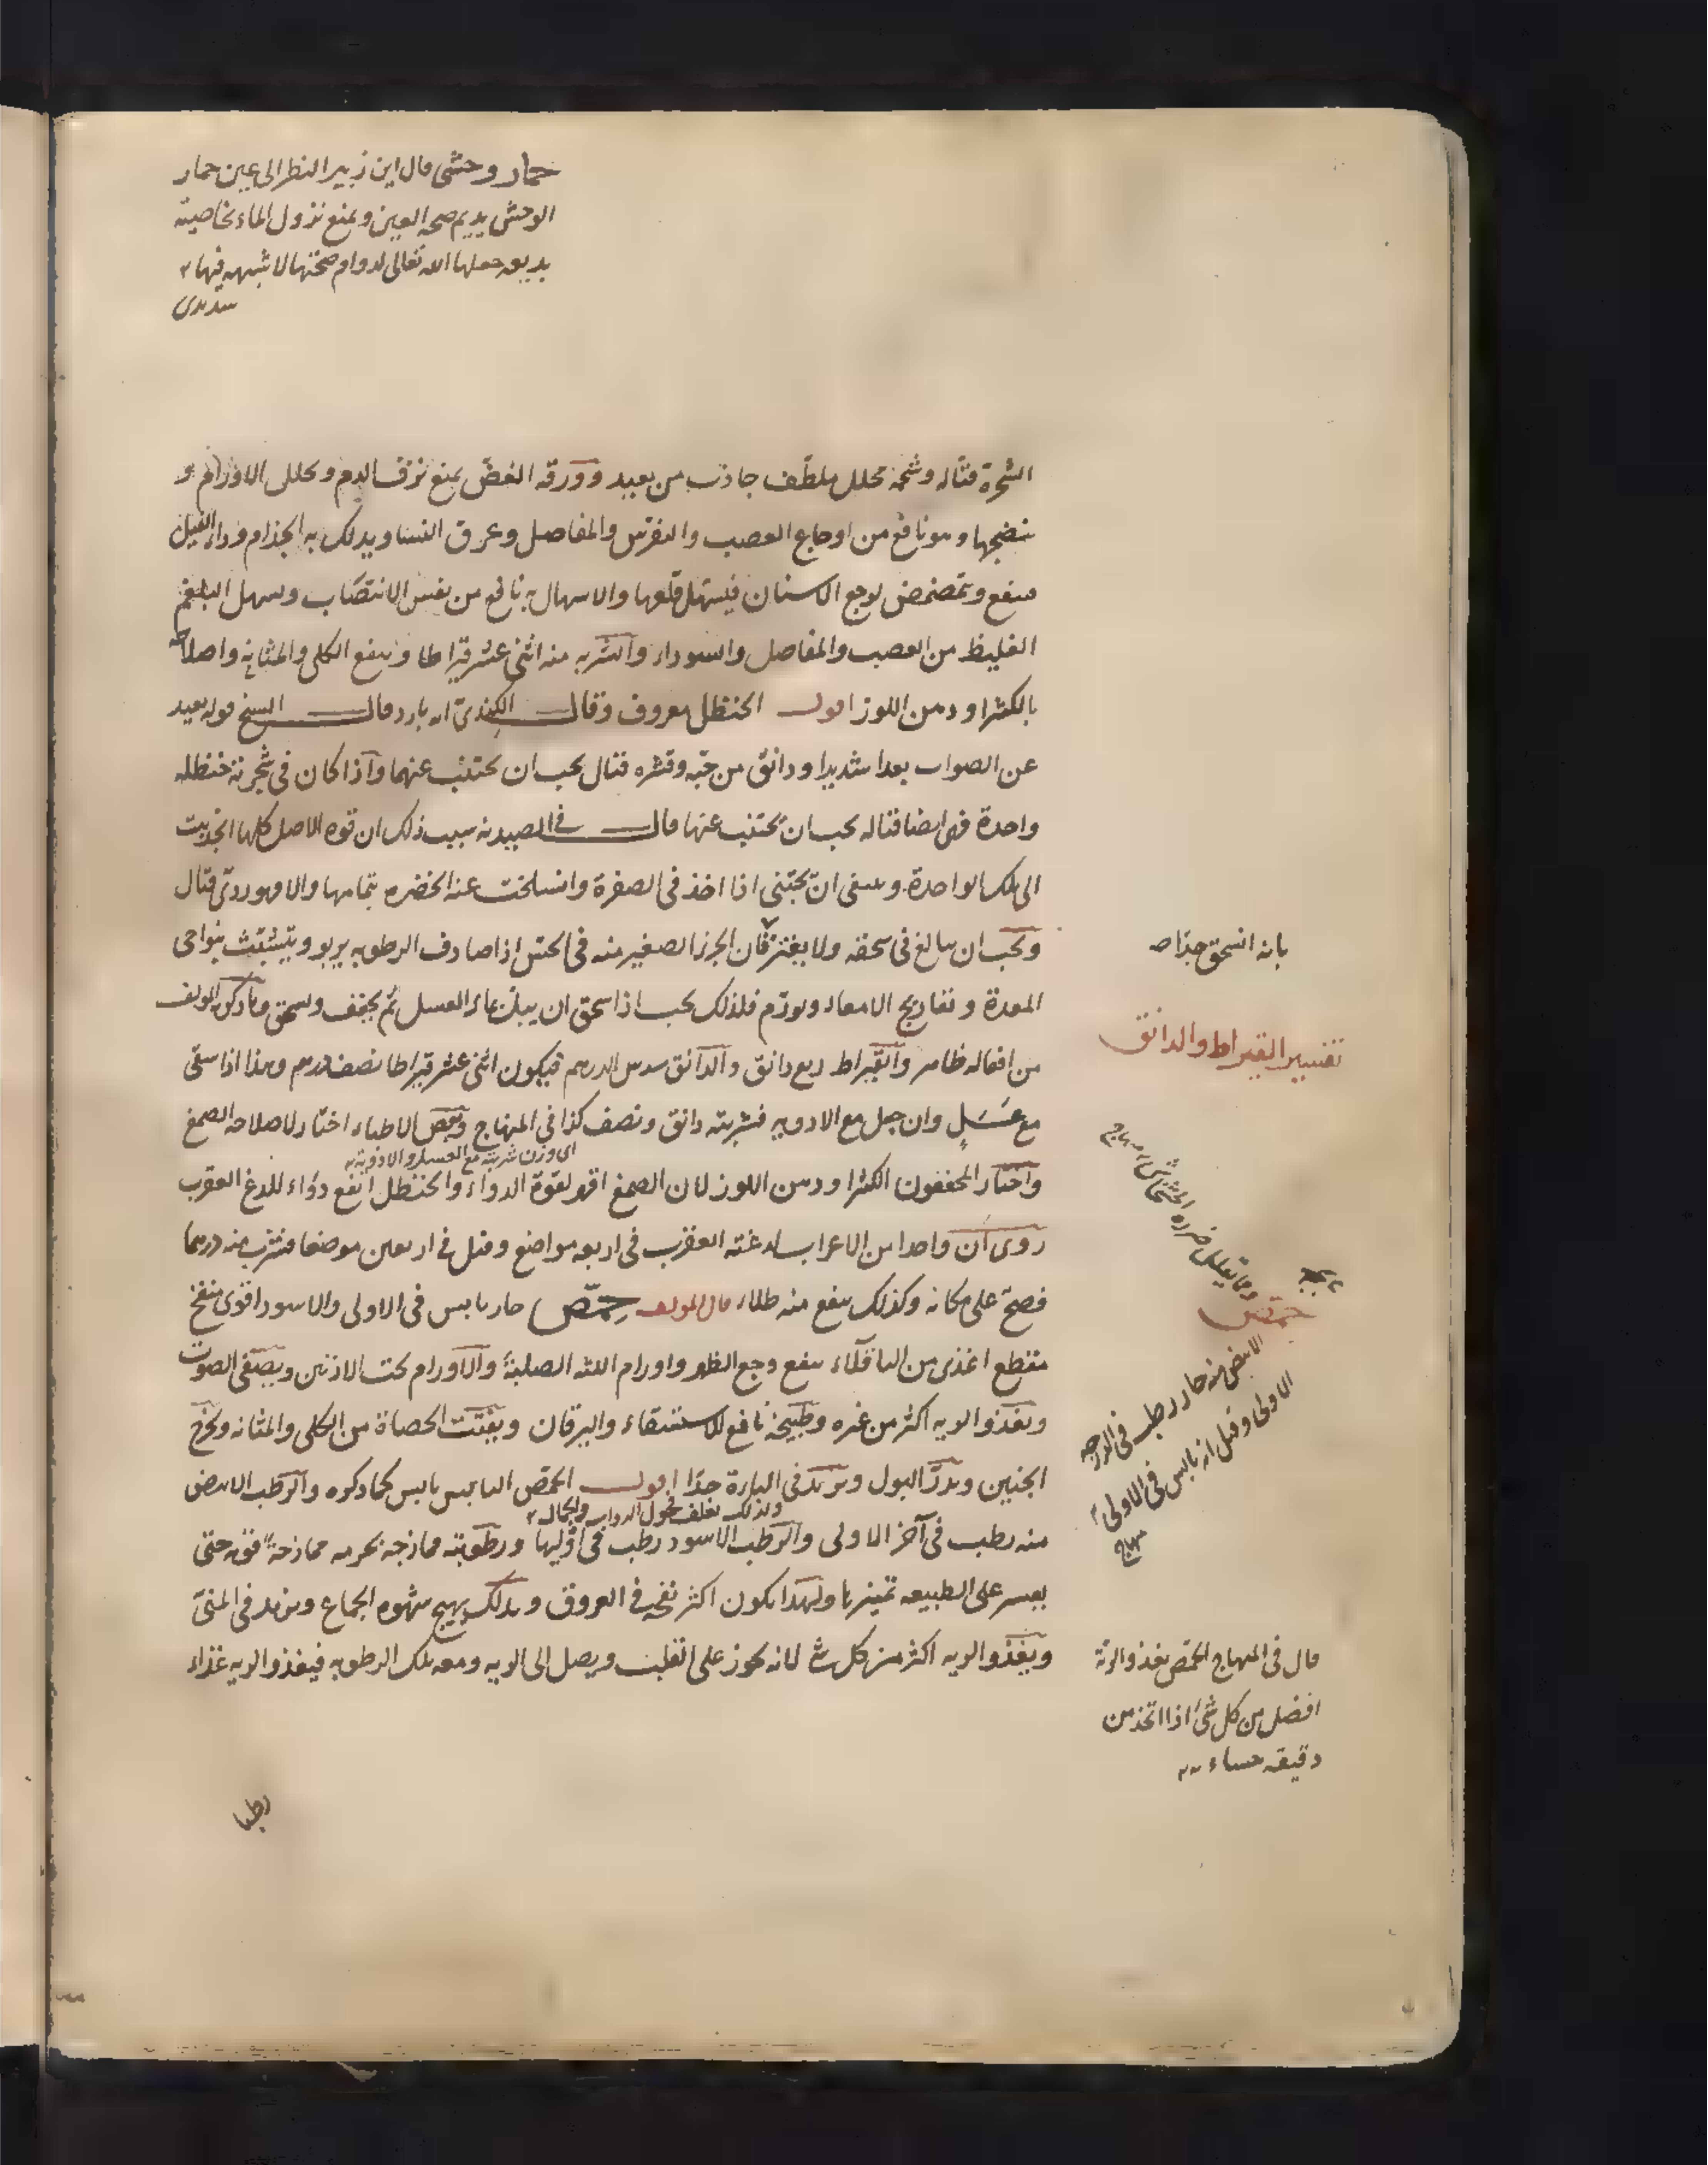 حمار وحشى قال ابن زبير النظر الى عين حمار
الوحش يديم صحة العين ويمنع نزول الماء بخاصية
بديعة جعلها الله تعالى لدوام صحتها لا شبهه فيها
سديدى
الشجرة قتاله وشحمه محلل ملطف جاذب من بعيد وورقه الغض يمنع نزف الدم ويحلل الاورام و
ينضجها وهو نافع من اوجاع العصب والنقرس والمفاصل وعرق النسا ويدلك به الجذام وداء الفيل
فينفع ويتمضمض لوجع الاسنان فيسهل قلعها والاسهال به نافع من نفس الانتصاب ويسهل البلغم
الغليظ من العصب والمفاصل والسوداء والشربه منه اثنى عشر قيراطا وينفع الكلى والمثانة واصلاحه
بالكثيرا ودهن اللوز اقول الحنظل معروف وقال الكندى انه بارد قال الشيخ قوله بعيد
عن الصواب بعدا شديدا ودانق من حبه وقشره قتال يجب ان يجتنب عنهما واذا كان فى شجرته حنظله
واحدة فهى ايضا قتاله يجب ان يجتنب عنها قال فى الصيدنه سبب ذلك ان قوه الاصل كلها انجذبت
الى تلك الواحدة وينبغى ان يجتنى اذا اخذ فى الصفرة وانسلخت عنه الخضره بتمامها والا فهو ردئ قتال
ويجب ان يبالغ فى سحقه ولا يغتر فان الجزء الصغير منه فى الحس اذا صادف الرطوبه يربو ويتشبث بنواحى
بانه انسحق جدا صح
المعدة وتعاريج الامعاء ويورم فلذلك يجب اذا سحق ان يبل بماء العسل ثم يجفف ويسحق وما ذكره المولف
من افعاله ظاهر والقيراط ربع دانق والدانق سدس الدرهم فيكون اثنى عشر قيراطا نصف درهم وهذا اذا سقى
تفسير القيراط والدانق
مع عسل وان جعل مع الادويه فشربته دانق ونصف كذا فى المنهاج وبعض الاطباء اختار لاصلاحه الصمغ
اى وزن شربته مع العسل والادوية
واختار المحققون الكثيرا ودهن اللوز لان الصمغ اقهر لقوة الدواء والحنظل انفع دواء للدغ العقرب
روى ان واحدا من الاعراب لدغته العقرب فى اربعه مواضع وقيل فى اربعين موضعا فشرب منه درهما
فصح على مكانه وكذلك ينفع منه طلاء قال المولف حمص حار يابس فى الاولى والاسود اقوى منفخ
حمص
مقطع اغذى من الباقلاء ينفع وجع الظهر واورام اللثه الصلبة والاورام تحت الاذنين ويصفى الصوت
ويغذو الريه اكثر من غيره وطبيخه نافع للاستسقاء واليرقان ويفتت الحصاة من الكلى والمثانه ويخرج
الجنين ويدر البول ويزيد فى الباءة جدا اقول الحمص اليابس يابس كما ذكره والرطب الابيض
ولذلك يعلف فحول الدواب والجمال
منه رطب فى آخر الاولى والرطب الاسود رطب فى اولها ورطوبته ممازجة بجرمه ممازجة قويه حتى
يعسر على الطبيعه تميزها ولهذا يكون اكثر نفخه فى العروق وبذلك يهيج شهوه الجماع ويزيد فى المنى
ويغذو الريه اكثر من كل شئ لانه يجوز على القلب ويصل الى الريه ومعه تلك الرطوبه فيغذو الريه غذاء
الابيض منه حار رطب فى الدرجه
الاولى وقيل انه يابس فى الاولى
منهاج
قال فى المنهاج الحمص يغذو الرئة
افضل من كل شئ اذا اتخذ من
دقيقه حساء
رطبا